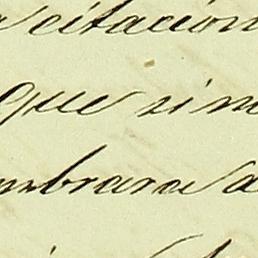 citacion
que sin
mbrara a